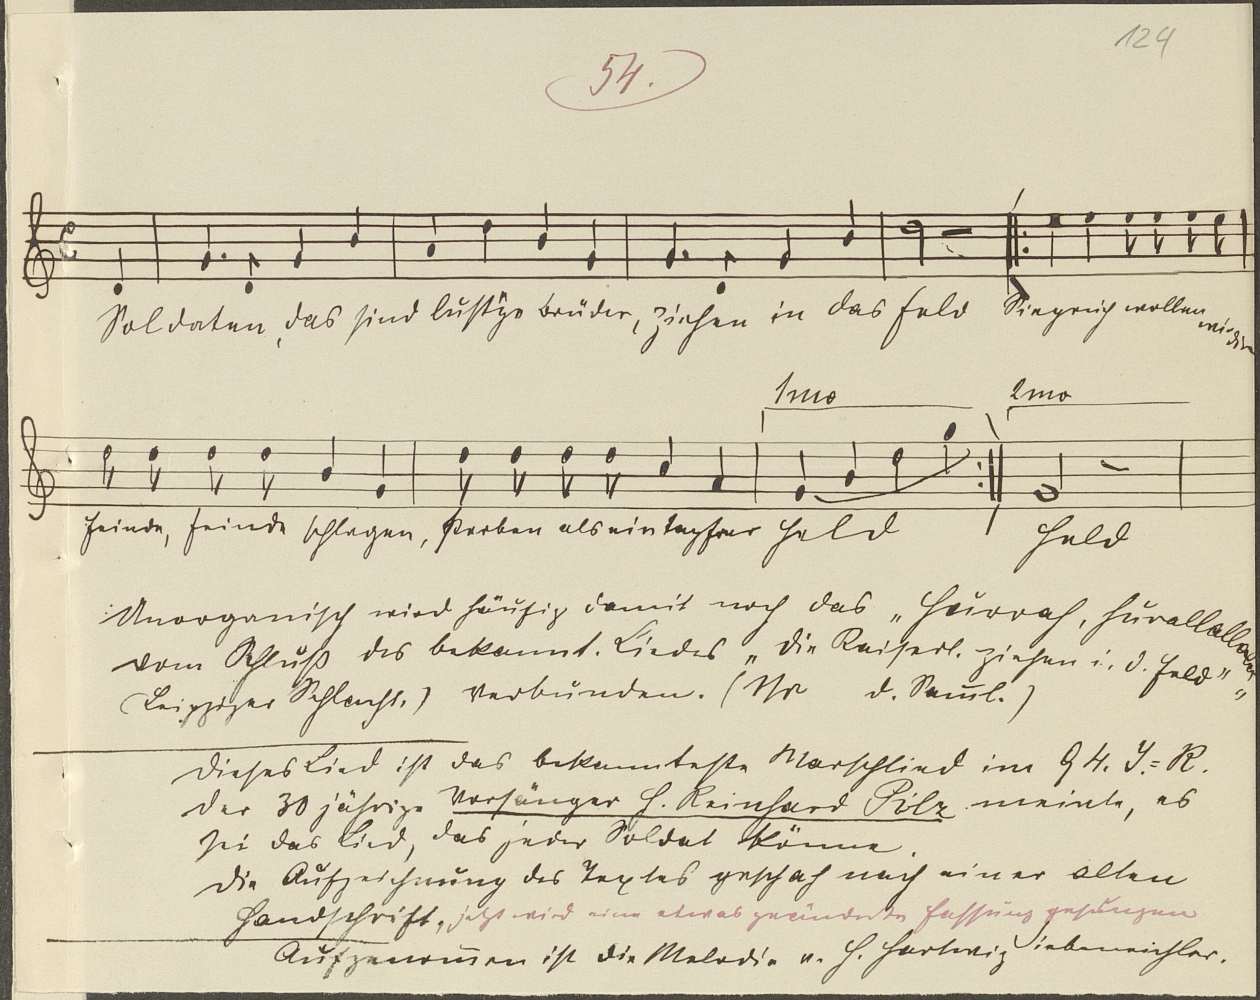 124
54.
Soldaten, das sind lust'ge Brüder, ziehen in das Feld Siegreich wollen wir die
1mo 2mo
Feinde, Feinde schlagen, sterben als ein tapfrer Held Held
Unorganisch wird häufig damit noch das „Hurrah, hurallallalla"
vom Schluß des bekannt. Liedes „Die Kaiserl. ziehen i. d. Feld"
(Leipziger Schlacht.) verbunden. (Nr d. Samml.)
Dieses Lied ist das bekannteste Marschlied im 94. I.=R.
Der 30 jährige Vorsänger H. Reinhard Pilz meinte, es
sei das Lied, das jeder Soldat könne.
Die Aufzeichnung des Textes geschah nach einer alten
Handschrift, jetzt wird eine etwas geänderte Fassung gesungen
Aufgenommen ist die Melodie v. H. Hartwig